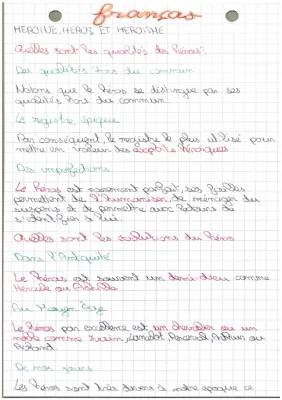 français
HEROÏNE, HEROS ET HEROISME
Quelles sont les qualités des héros?
Des qualités hors du commun
Notons que le héros se distingue par ses
qualités hors du commun.
Le registre épique
Par conséquent, le registre le plus utilisé pour
mettre en valeur ses exploits héroïques
Des imperfections
Le héros est rarement parfait, ses failles
permettent de l'humaniser, de ménager du
suspens et de permettre aux lecteurs de
s'identifier à lui.
Quelles sont les évolutions du héros
Dans l'Antiquité
Le héros est souvent un demi-dieu comme
Hercule ou Achille
Au Moyen Âge
Le héros par excellence est un chevalier ou un
noble comme Yvain, Lancelot, Perceval, Arthur ou
Roland
De nos jours
Les héros sont très divers à notre époque ce